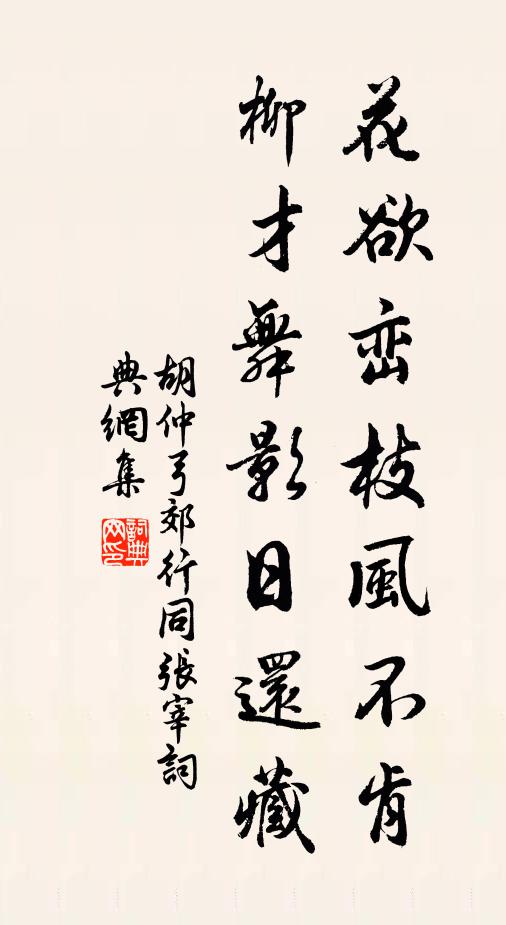 花欲峦枝風不肯
柳才舞影日還藏
胡仲弓郊行同張宰詞
典網集
詞典網印